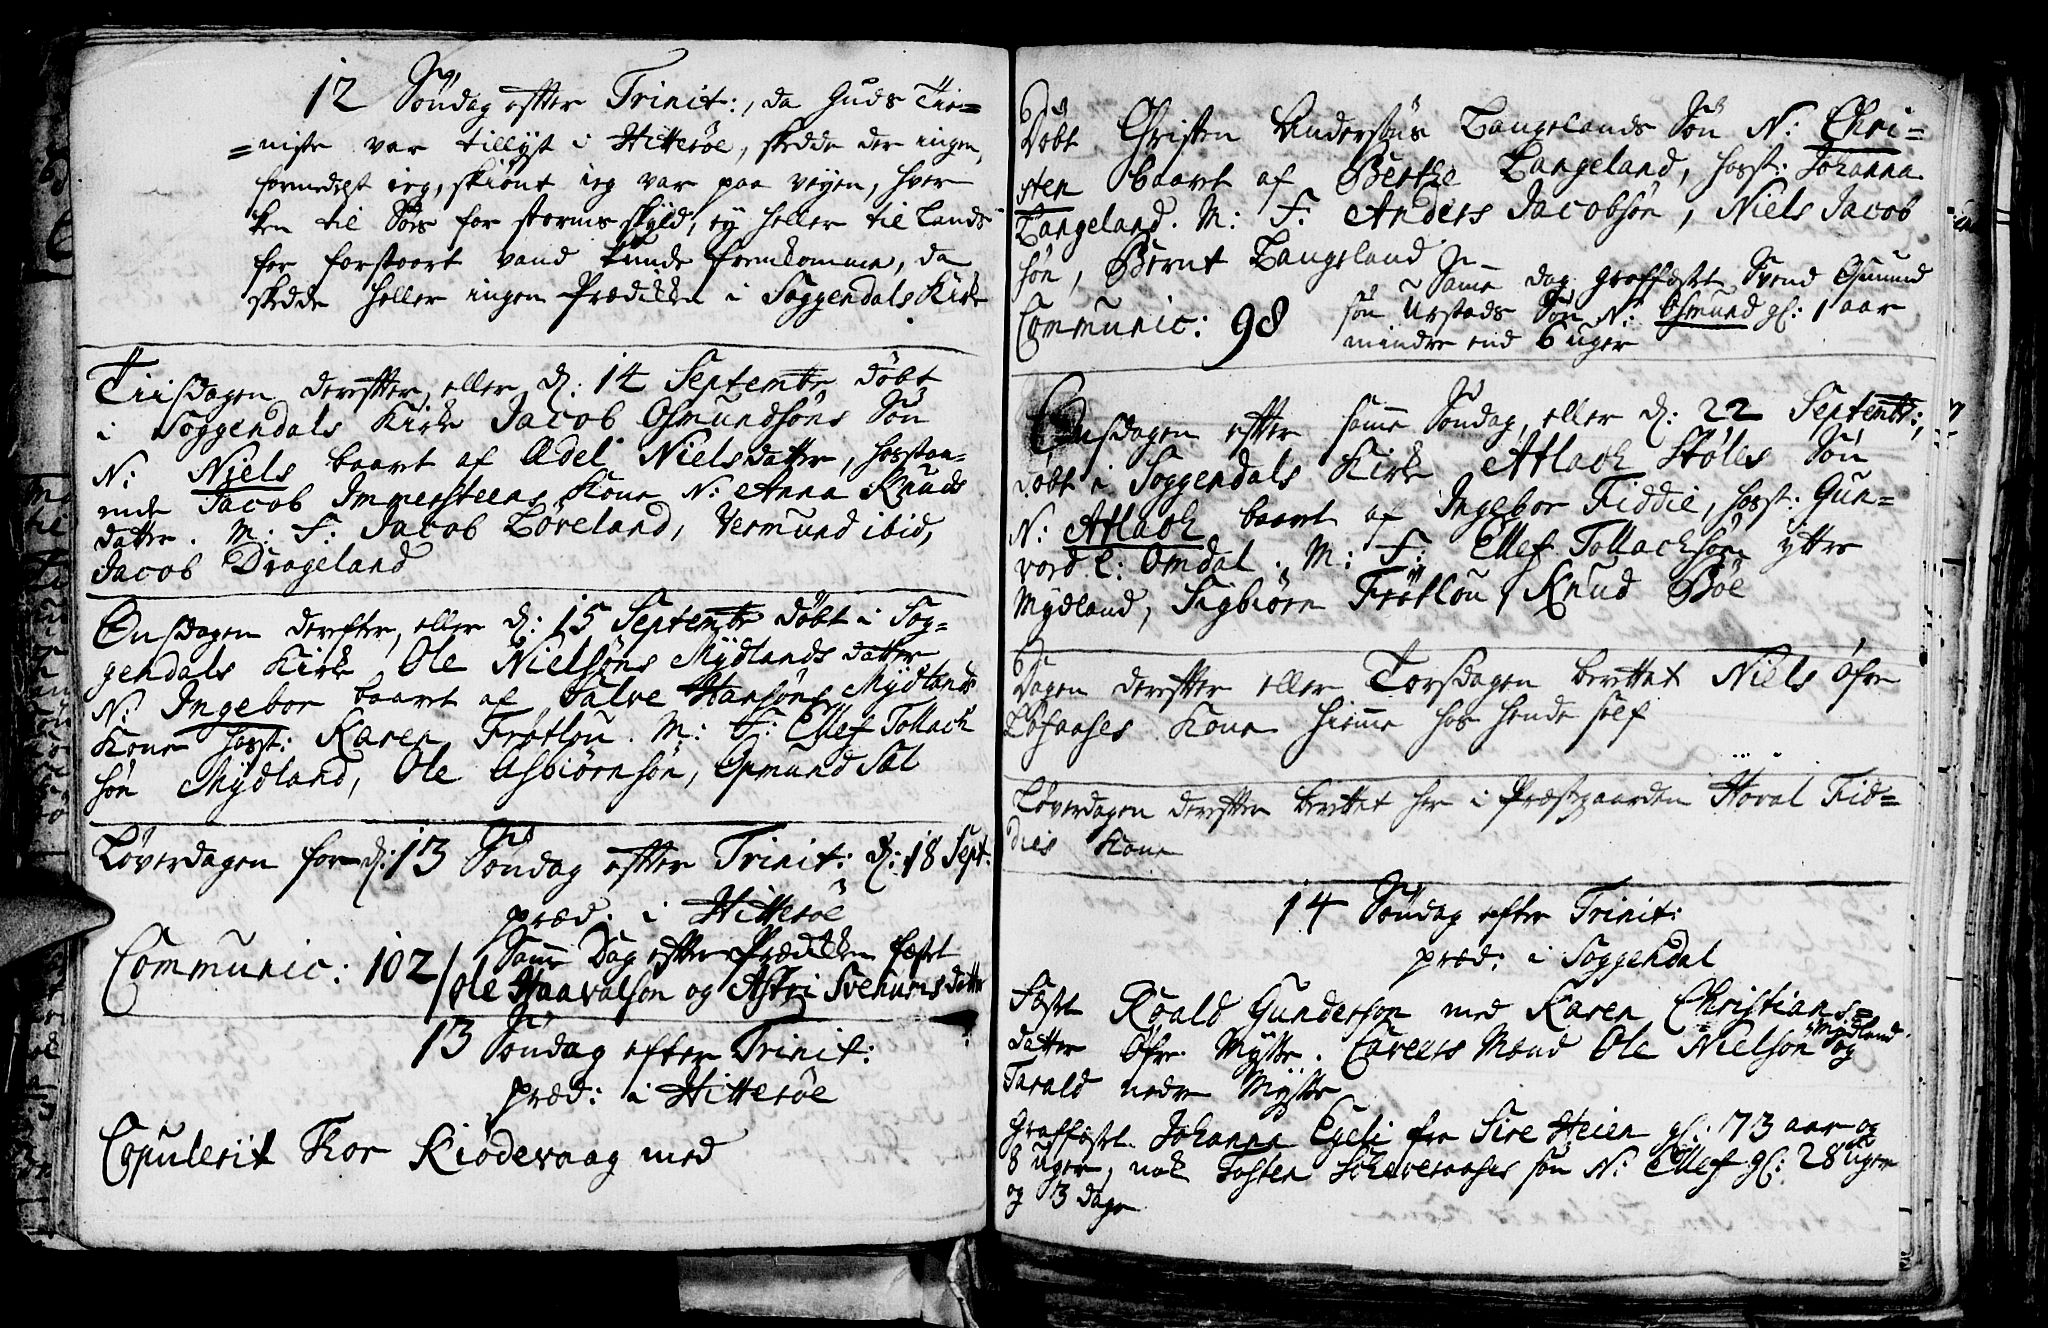 12 Søndag efter Trinit:, da Guds Tie=
=niste var tillyst i Hitterøe, skedde der ingen,
formedelst ieg, skiønt ieg var paa veyen, hver
ken til Søes for storms skyld, ey heller til Lands
for forstoort vand kunde fremkomme, da
skedde heller ingen Prædiken i Soggendals Kirke
Tiisdagen derefter, eller d: 14 Septembr døbt
i Soggendals Kirke Jacob Osmundsøns Søn
N: Niels baaret af Ædel Nielsdatter, hosstaa-
ende Jacob Immersteens Kone N: Anna Knuds
datter. M: F: Jacob Løveland, Vermund ibid,
Jacob Drageland
Onsdagen derefter, eller d: 15 Septembr døbt i Sog=
gendals Kirke Ole Nielsøns Mydlands datter
N: Ingebor baaret af Salve Hansøns Mydlands
Kone hosst: Karen Frøtlou. M: F: Ellef Tollach
søn Mydland, Ole Asbiørnsøn, Osmund Sal
Løverdagen for d: 13 Søndag efter Trinit: d: 18 Sept:
præd: i Hitterøe
Communic: 102 / Samme Dag efter Prædiken fæst
Ole Haavalsøn og Astri Svenunsdatter
13 Søndag efter Trinit:
præd: i Hitterøe
Copulerit Thor Kiødevaag med
Døbt Christen Andersøns Langelands Søn N: Chri=
sten baaret af Berthe Langeland, hosst: Johanna
Langeland. M: F: Anders Jacobsøn, Niels Jacob
søn, Bernt Langeland
Samme dag graffæstet Svend Osmund
Communic: 98 søn Urstads Søn N: Osmund gl: 1 aar
mindre end 6 uger
Onsdagen efter samme Søndag, eller d: 22 Septembr:,
døbt i Soggendals Kirke Atlach Støles Søn
N: Atlach baaret af Ingebor Fiddie, hosst: Gun=
vord l: Omdal. M: F: Ellef Tollachsøn yttre
Mydland, Sigbiørn Frøtlou, Knud Bøe
Dagen derefter eller Torsdagen berettet Niels Øfre
Løfaases Kone hiemme hos hende self
Løverdagen derefter berettet her i Præstgaarden Hoval Fid=
dies Kone
14 Søndag efter Trinit:
præd: i Soggendal
Fæstet Roald Gundersøn med Karen Christians=
datter Øfre Mysse. Caveers Mænd Ole Nielsøn Mydland og
Tarald nedre Mysse
Graffæstet Johanna Egeli fra Sire Heien gl: 73 aar og
8 uger, nok Tosten søn N: Ellef gl: 28 uger
og 3 dage